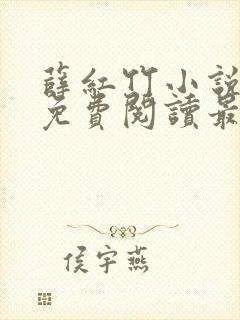 薛紅竹小說
免費閱讀最
侯宇燕